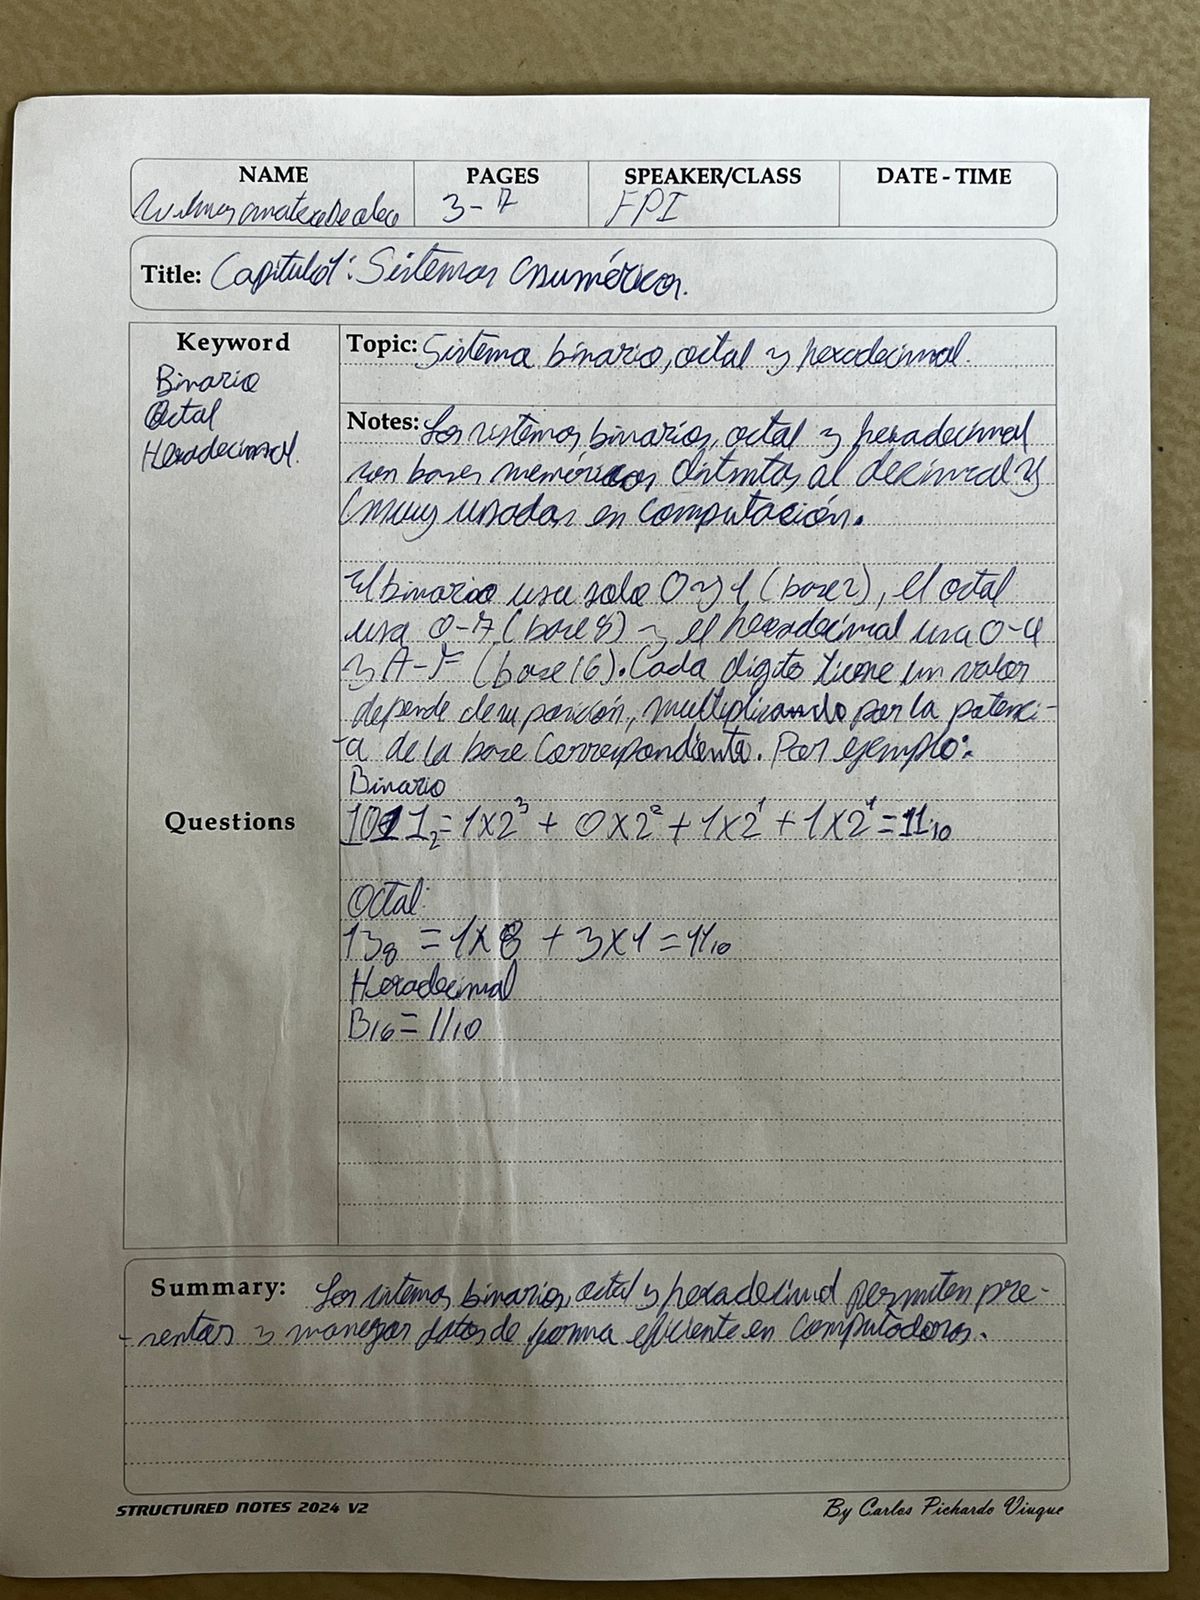 NAME PAGES SPEAKER/CLASS DATE - TIME
3-7 FPI
Title: Capitulo 1: Sistemas numéricos.
Keyword
Binario
Octal
Hexadecimal.
Topic: Sistema binario, octal y hexadecimal.
Notes: Los sistemas binarios, octal y hexadecimal
son bases numéricas distintas al decimal y
muy usadas en computación.
El binario usa solo 0 y 1 (base 2), el octal
usa 0-7 (base 8) y el hexadecimal usa 0-9
y A-F (base 16). Cada digito tiene un valor
depende de su posición, multiplicando por la potenci-
-a de la base correspondiente. Por ejemplo:
Binario
Questions
1011₂ = 1x2³ + 0x2² + 1x2¹ + 1x2¹ = 11₁₀
Octal:
13₈ = 1x8 + 3x1 = 11₁₀
Hexadecimal
B₁₆ = 11₁₀
Summary: Los sistemas binarios, octal y hexadecimal permiten pre-
-sentar y manejar datos de forma eficiente en computadoras.
STRUCTURED NOTES 2024 V2
By Carlos Pichardo Viuque